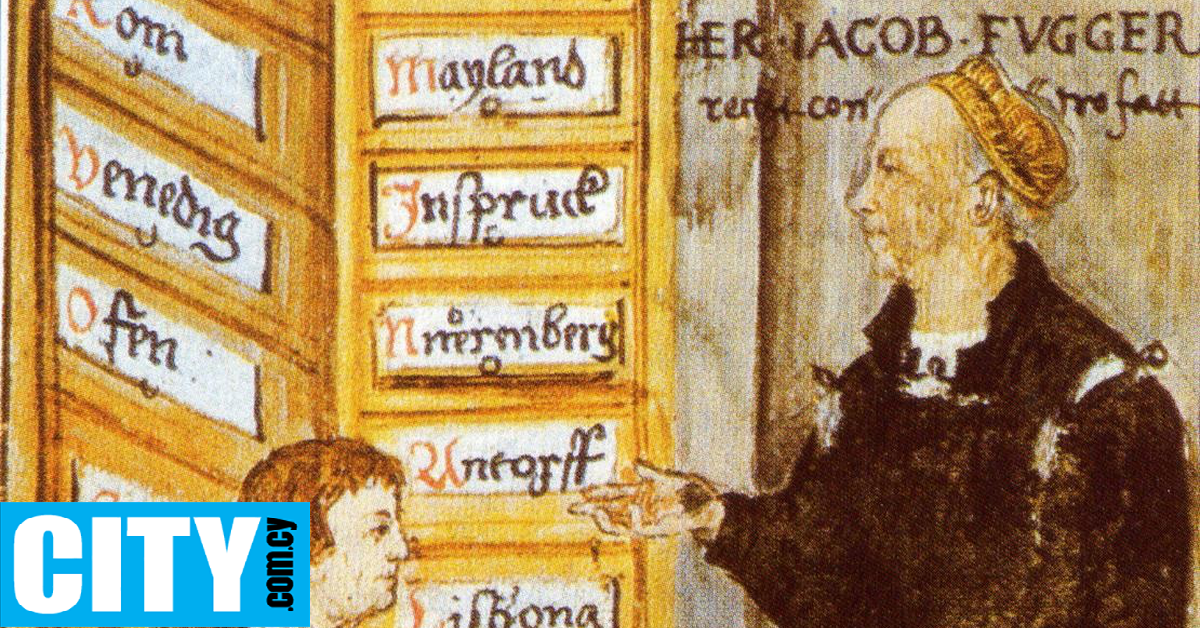 Rom
Venedig
Ofen
Mayland
Jnſpruck
Nuermberg
Antorff
Lisbona
HER·IACOB·FVGGER
CITY.com.cy